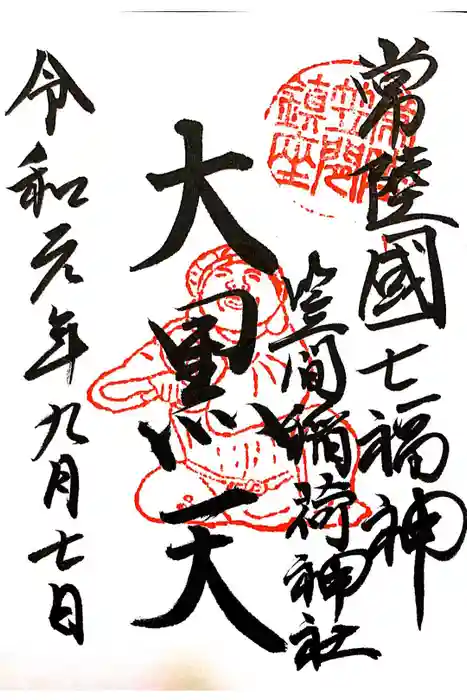 常陸國七福神
笠間稲荷神社
大黒天
令和元年九月七日